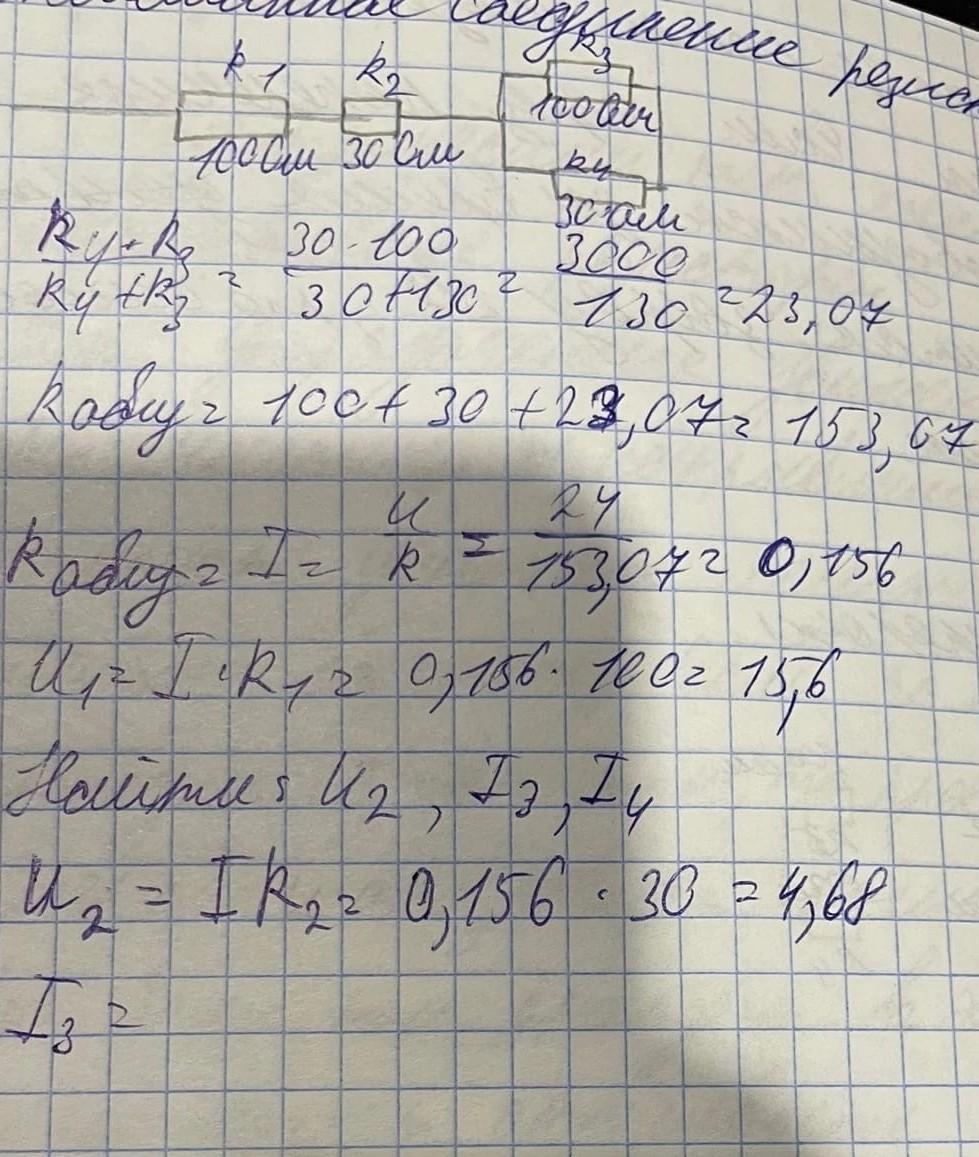 соединение
R1 R2 R3
100 Ом 30 Ом 100 Ом
R4
30 Ом
R4·R3 / R4+R3 = 30·100 / 30+130 = 3000 / 130 = 23,07
Rобщ = 100 + 30 + 23,07 = 153,07
Rобщ = I = U / R = 24 / 153,07 = 0,156
U1 = I·R1 = 0,156·100 = 15,6
Найти: U2, I3, I4
U2 = I R2 = 0,156 · 30 = 4,68
I3 =